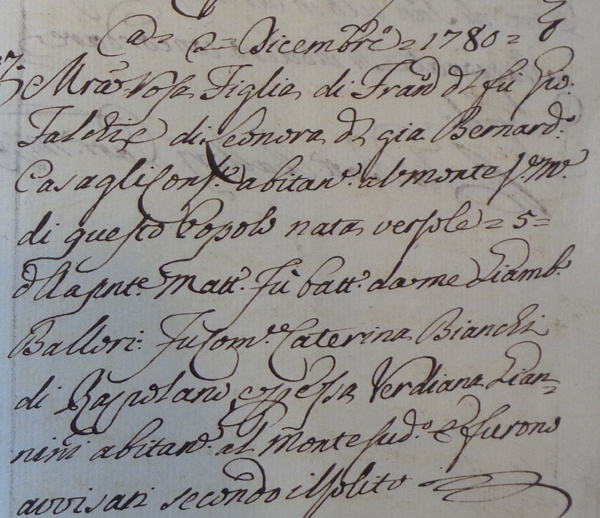 Adì 2 Dicembre = 1780 =
Mrã Rosa Figlia di Franc.º d. fu Gio:
Falchi e di Leonora d. già Bernard.º
Casagli Cons.ti abitan.ti al monte s.º m.º
di questo Popolo nata verso le = 5 =
d'lla pnte Matt.ª fù batt.ª da me Giamb.ª
Ballori: fu Com.e Caterina Bianchi
di Rapolano, e p essa Verdiana Gian=
nini abitan.e al monte sud.º e furono
avvisati secondo il solito